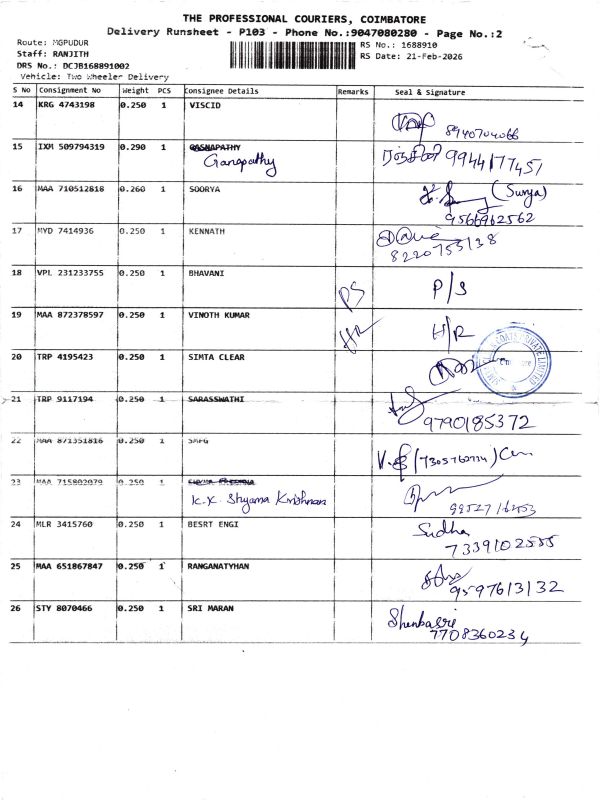 THE PROFESSIONAL COURIERS, COIMBATORE
Delivery Runsheet - P103 - Phone No.:9047080280 - Page No.:2
Route: MGPUDUR
Staff: RANJITH
DRS No.: DCJB168891002
Vehicle: Two Wheeler Delivery
RS No.: 1688910
RS Date: 21-Feb-2026
S No Consignment No Weight PCS Consignee Details Remarks Seal & Signature
14 KRG 4743198 0.250 1 VISCID
8940704066
15 IXM 509794319 0.290 1 GASNAPATHY
Ganapathy 9944177457
16 MAA 710512818 0.260 1 SOORYA (Surya)
9566962562
17 MYD 7414936 0.250 1 KENNATH
8220755138
18 VPL 231233755 0.250 1 BHAVANI PS P/S
19 MAA 872378597 0.250 1 VINOTH KUMAR HR H/R
20 TRP 4195423 0.250 1 SIMTA CLEAR
PRIVATE LIMITED
21 TRP 9117194 0.250 1 SARASSWATHI
9790185372
22 MAA 871351816 0.250 1 SMFG (7305762734)
23 MAA 715802079 0.250 1
K.K. Shyama Krishnan
24 MLR 3415760 0.250 1 BESRT ENGI Sudha
7339102555
25 MAA 651867847 0.250 1 RANGANATYHAN
9597613132
26 STY 8070466 0.250 1 SRI MARAN Shenbasri
7708360234